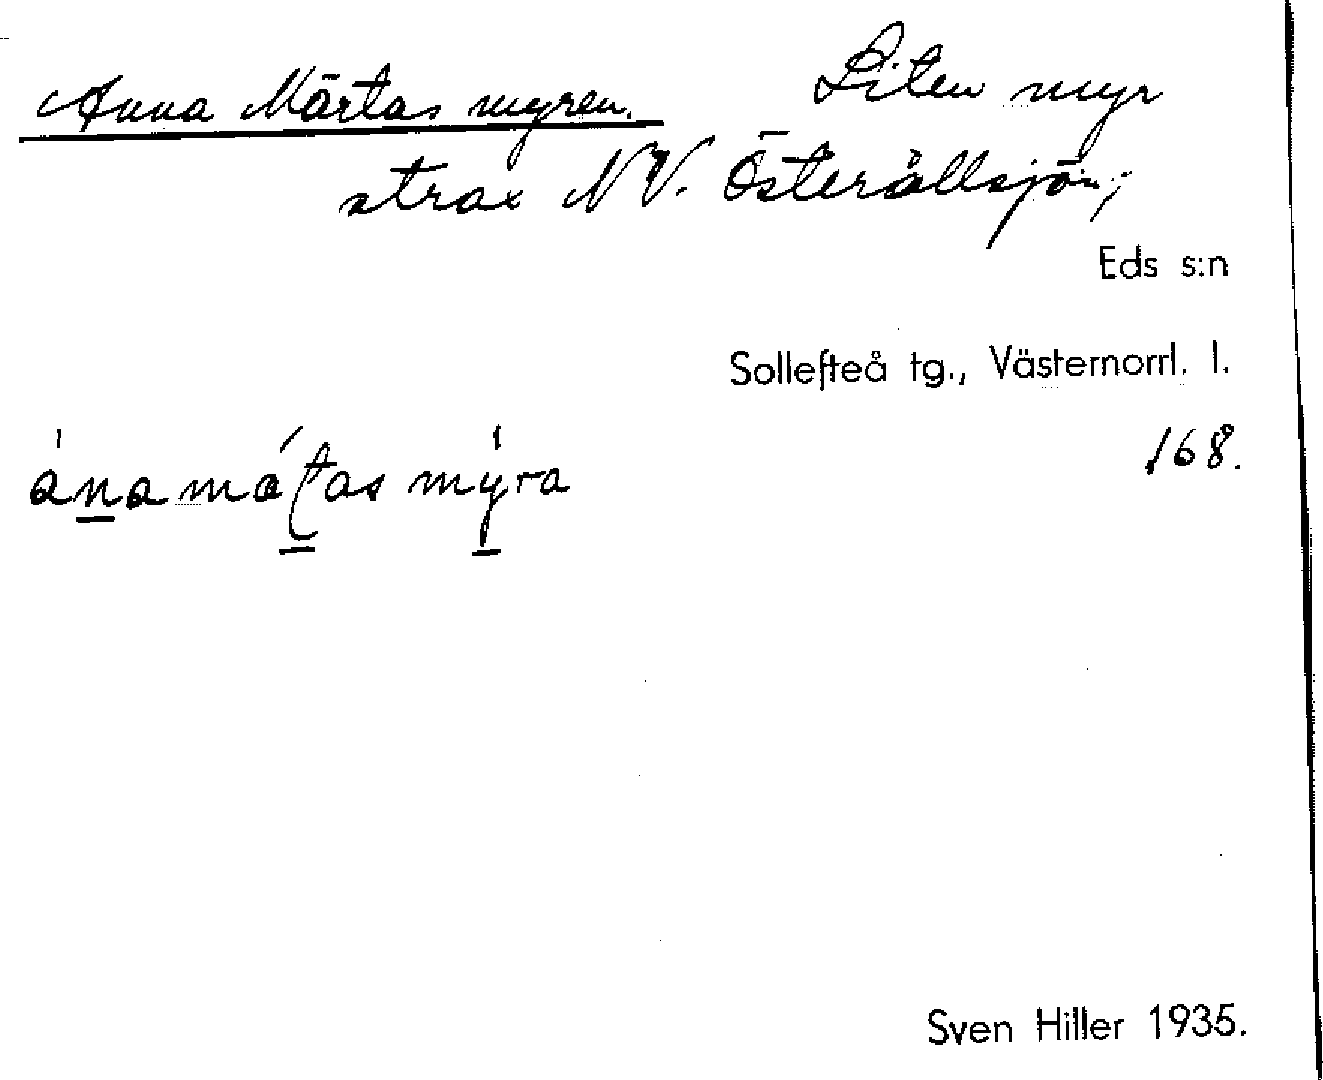 Anna Märtas myren. Liten myr
strax N V. Österållsjön;
Eds s:n
Sollefteå tg., Västernorrl. l.
168.
ánamáʈas mýra
Sven Hiller 1935.